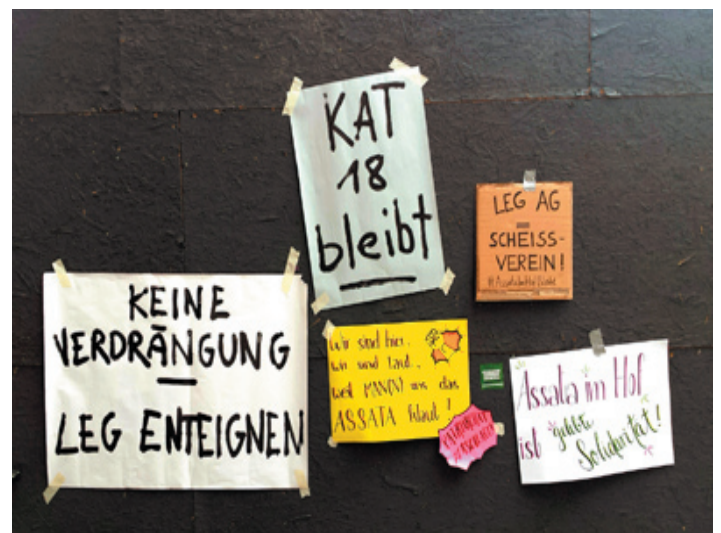 KAT
18
bleibt
LEG AG
=
SCHEISS-
VEREIN!
KEINE
VERDRÄNGUNG
—
LEG ENTEIGNEN
Wir sind hier,
wir sind laut,
weil MAN(N) uns das
ASSATA klaut!
Assata im Hof
ist gelebte
Solidarität!